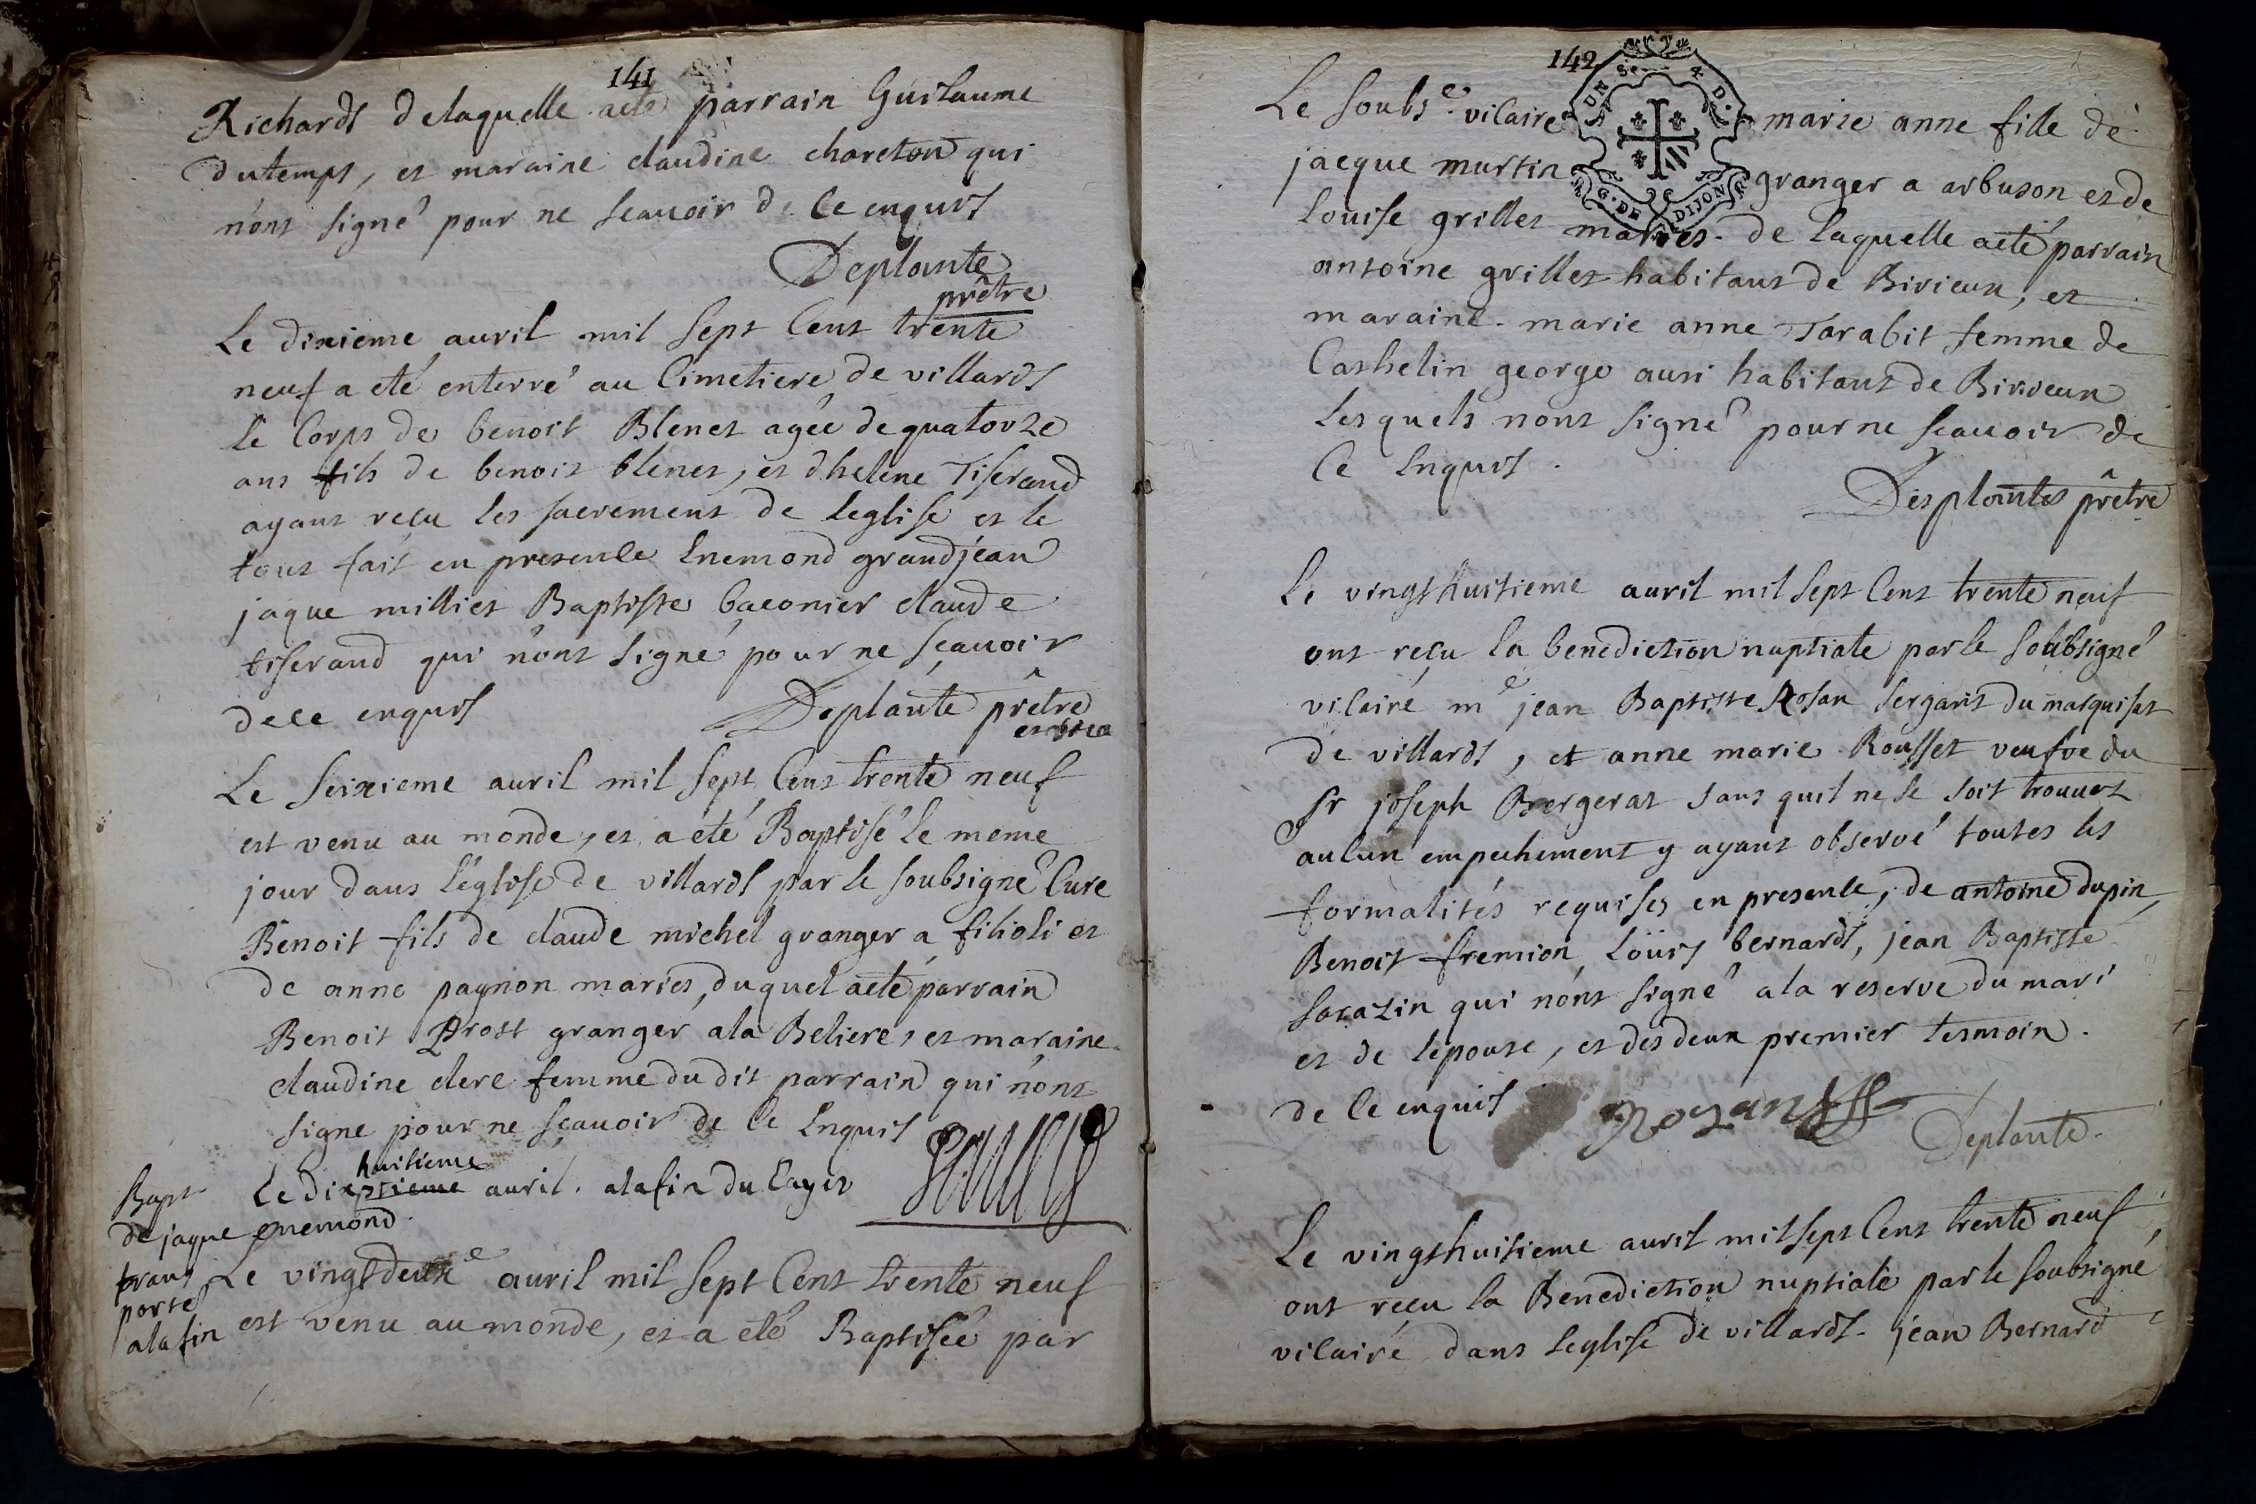 141
Richards delaquelle aeté parrain Guilaume
dutemps, et maraine claudine chareton qui
n'ont signé pour ne scauoir de Ce enquis
Deplante
prêtre
Le dixieme auril mil sept Cent trente
neuf a eté enterré au Cimetiere de villards
le Corps de benoit Blenet agée de quatorze
ans fils de benoit blenet, et dhelene Tiserand
ayant reçu les sacrement de leglise et le
tout fait en presence Enemond grandjean
jaque milliet Baptiste baconier claude
tiserand qui n'ont signé pour ne sçauoir
de ce enquis
Deplante prêtre
et vica
Le seixieme auril mil sept Cent trente neuf
est venu au monde, et a été Baptisé le meme
jour dans l'églose de villards par le soubsigné Curé
Benoit fils de claude michel granger a filioli et
de anne pagnon mariés, duquel aeté parrain
Benoit Prost granger ala Beliere, et maraine
claudine clere femme du dit parrain qui n'ont
signe pour ne sçauoir de Ce Enquis
huitieme
Le dixptieme auril. alafin du Cayer
Bapt
de jaque enemond
trans
porté
alafin
Le vingtdeuxe auril mil sept Cent trente neuf
est venu au monde, et a eté Baptisée par
142
UN Se 4 D.
G. DE DIJON
Le soubse. vilaire marie anne fille de
jacque martin granger a arbuson et de
Louise grillet mariés. de laquelle aeté parrain
antoine grillet habitant de Birieux, et
maraine. marie anne Tarabit femme de
Cathelin george ausi habitant de Birieux
lesquels nont signé pour ne scauoir de
Ce Enquis.
Desplantes prêtre
Le vingthuitieme auril mil sept Cent trente neuf
ont reçu la benediction nuptiale par le soubsigné
vicairé me jean Baptiste Rosan sergant du marquisat
de villards, et anne marie Rousset veufve du
sr joseph Bergerat sans quil ne se soit trouuez
aucun empechement y ayant observé toutes les
formalités requises en presence, de antoine dupin,
Benoit fremion, Loüis bernards, jean Baptiste
sarazin qui n'ont signé ala reserve du mari
et de lepouse, et des deux premier tesmoin.
de Ce enquis
Rozan
Deplante.
Le vingthuitieme auril mil sept Cent trente neuf
ont reçu la Benediction nuptiale par le soubsigné
vicairé dans leglise de villards. jean Bernard